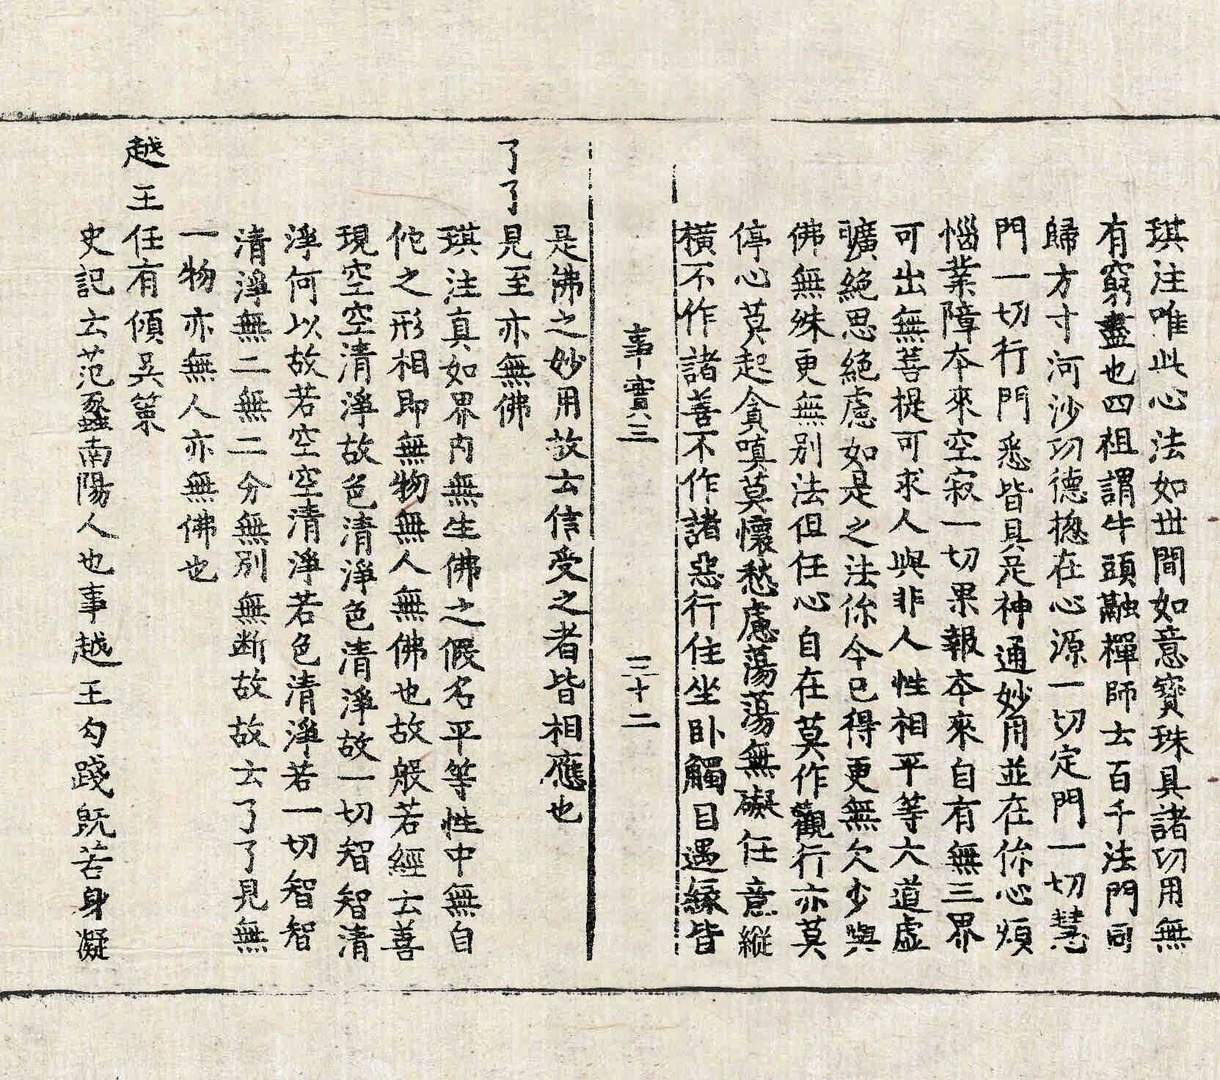 琪注唯此心法如世間如意寶珠具諸功用無
有窮盡也四祖謂牛頭融禪師云百千法門同
歸方寸河沙功德揔在心源一切定門一切慧
門一切行門悉皆具足神通妙用並在你心煩
惱業障本來空寂一切果報本來自有無三界
可出無菩提可求人與非人性相平等大道虛
曠絕思絕慮如是之法你今已得更無欠少與
佛無殊更無別法但任心自在莫作觀行亦莫
停心莫起貪嗔莫懷愁慮蕩蕩無礙任意縱
橫不作諸善不作諸惡行住坐卧觸目遇緣皆
事實三 三十二
是佛之妙用故云信受之者皆相應也
了了見至亦無佛
琪注真如界內無生佛之假名平等性中無自
佗之形相即無物無人無佛也故般若經云善
現空空清淨故色清淨色清淨故一切智智清
淨何以故若空空清淨若色清淨若一切智智
清淨無二無二分無別無断故故云了了見無
一物亦無人亦無佛也
越王任有傾吳策
史記云范蠡南陽人也事越王勾踐既苦身凝